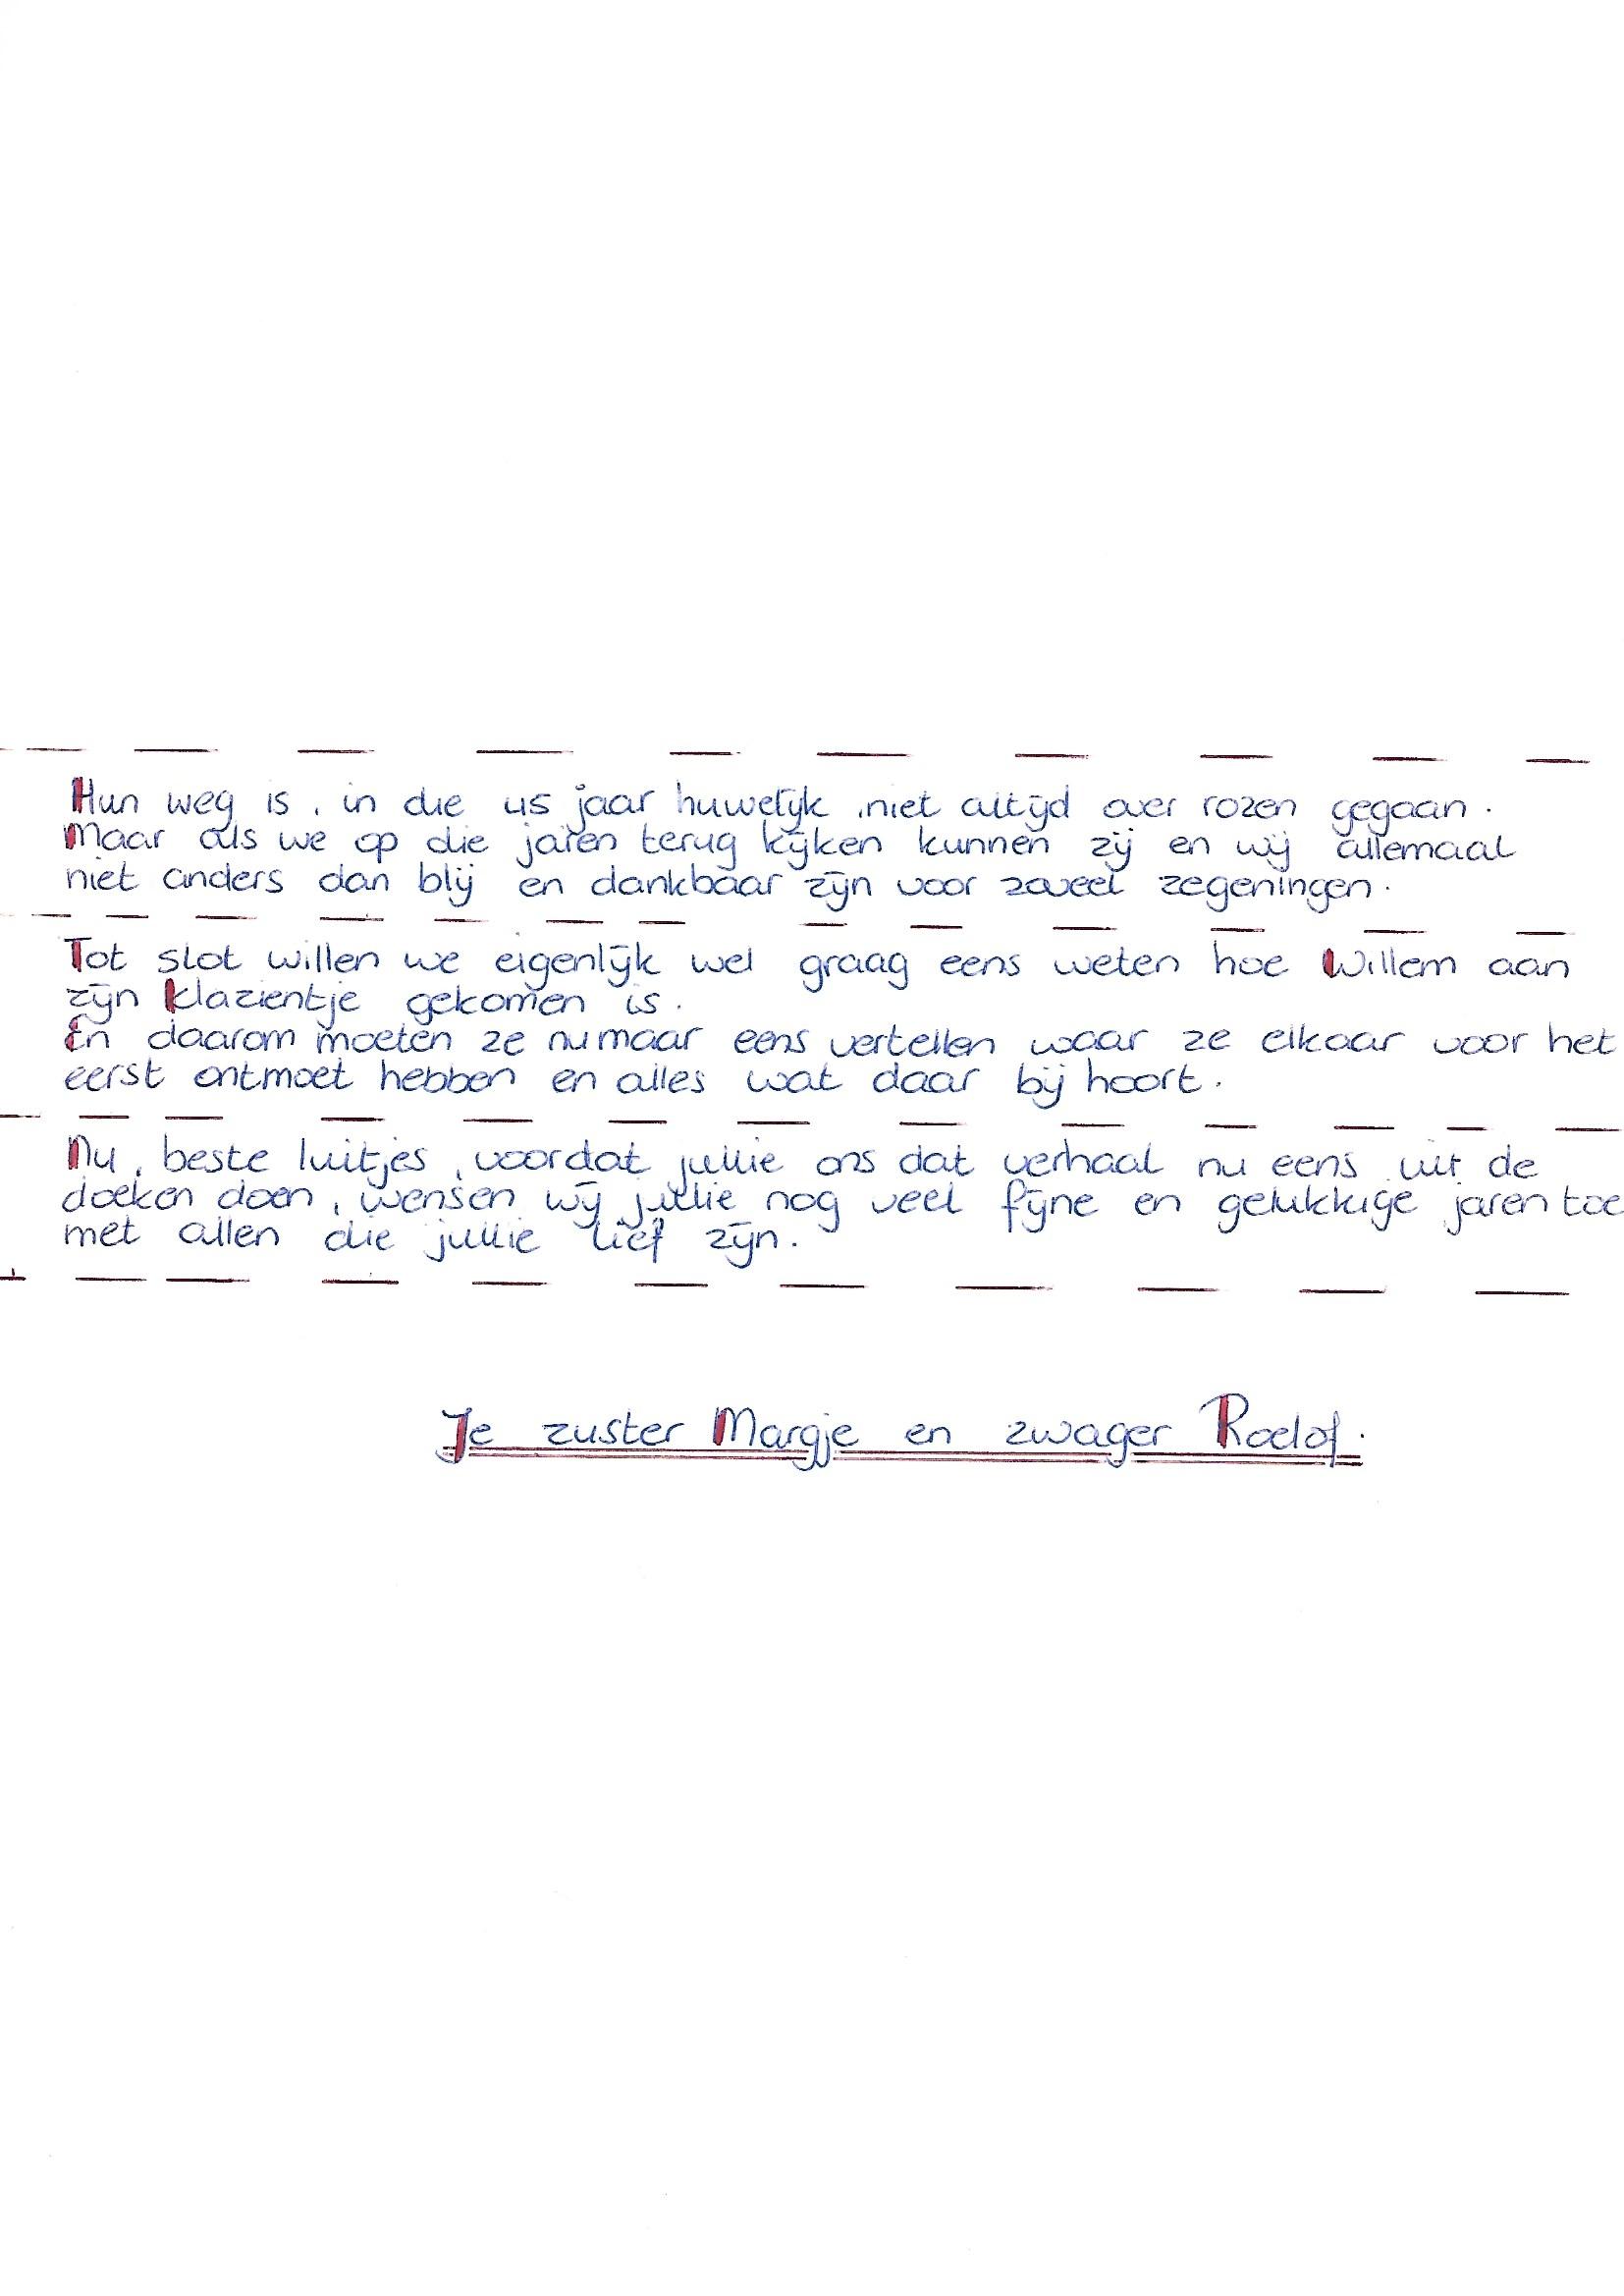 Hun weg is, in die 45 jaar huwelijk, niet altijd over rozen gegaan.
Maar als we op die jaren terug kijken kunnen zij en wij allemaal
niet anders dan blij en dankbaar zijn voor zoveel zegeningen.
Tot slot willen we eigenlijk wel graag eens weten hoe Willem aan
zijn Klazientje gekomen is.
En daarom moeten ze nu maar eens vertellen waar ze elkaar voor het
eerst ontmoet hebben en alles wat daar bij hoort.
Nu, beste luitjes, voordat jullie ons dat verhaal nu eens uit de
doeken doen, wensen wij jullie nog veel fijne en gelukkige jaren toe
met allen die jullie lief zijn.
Je zuster Margje en zwager Roelof.